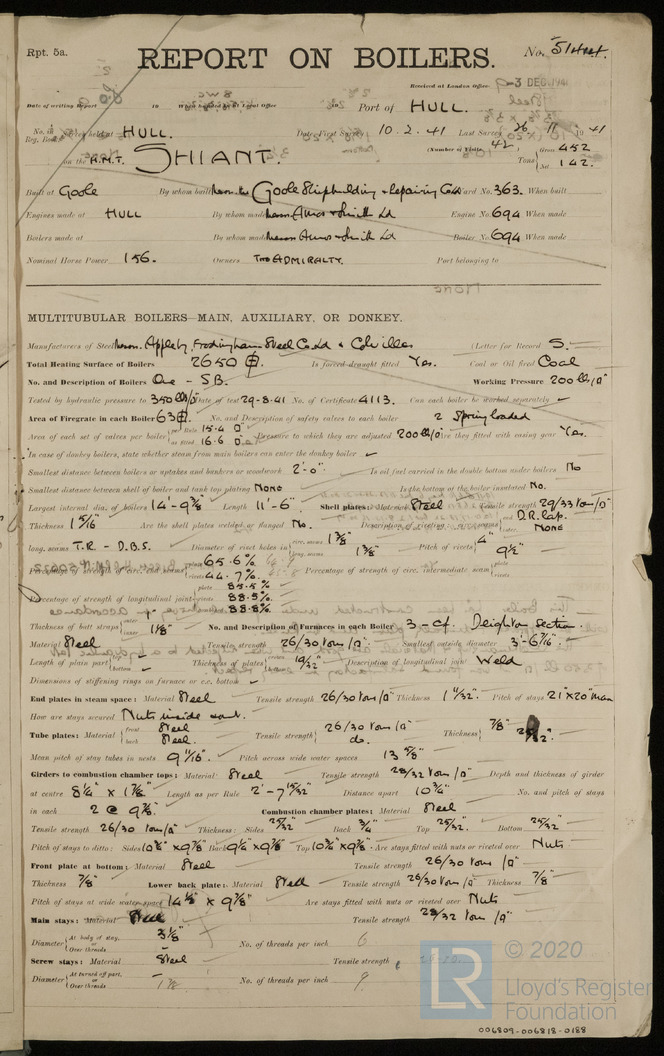 Rpt. 5a.
REPORT ON BOILERS.
No.
Received at London Office
3 DEC. 1941
Date of writing Report 19 When handed in at Local Office 19 Port of HULL.
No. in Reg. Book. Survey held at HULL. Date, First Survey 10.2.41 Last Survey 26 11 1941
on the H.M.T. SHIANT. (Number of Visits 42) Tons Gross 452 Net 142.
Built at Goole By whom built Messrs The Goole Shipbuilding & Repairing Co Ld Yard No. 363. When built
Engines made at HULL By whom made Messrs Amos & Smith Ld Engine No. 694 When made
Boilers made at By whom made Messrs Amos & Smith Ld Boiler No. 694 When made
Nominal Horse Power 156. Owners The ADMIRALTY. Port belonging to
MULTITUBULAR BOILERS—MAIN, AUXILIARY, OR DONKEY.
Manufacturers of Steel Messrs. Appleby, Frodingham Steel Co Ld & Colvilles (Letter for Record S.
Total Heating Surface of Boilers 2650 Is forced draught fitted Yes. Coal or Oil fired Coal
No. and Description of Boilers One - S.B. Working Pressure 200 lbs/□"
Tested by hydraulic pressure to 350 lbs/□" Date of test 29.8.41 No. of Certificate 4113. Can each boiler be worked separately ✓
Area of Firegrate in each Boiler 63 No. and Description of safety valves to each boiler 2 Spring loaded
Area of each set of valves per boiler per Rule 15.4 □" as fitted 16.6 □" Pressure to which they are adjusted 200 lb/□" Are they fitted with easing gear Yes.
In case of donkey boilers, state whether steam from main boilers can enter the donkey boiler ✓
Smallest distance between boilers or uptakes and bunkers or woodwork 2'-0" Is oil fuel carried in the double bottom under boilers No
Smallest distance between shell of boiler and tank top plating NONE Is the bottom of the boiler insulated No.
Largest internal dia. of boilers 14'-9⅜" Length 11'-6" Shell plates: Material Steel Tensile strength 29/33 tons/□"
Thickness 1 5/16" Are the shell plates welded or flanged No. Description of riveting: circ. seams end D.R. Lap. inter. NONE
long. seams T.R. - D.B.S. Diameter of rivet holes in circ. seams 1⅜" long. seams 1⅜" Pitch of rivets 4" 9½"
Percentage of strength of circ. end seams plate 65.6% rivets 44.7% Percentage of strength of circ. intermediate seam plate rivets
Percentage of strength of longitudinal joint plate 85.5% rivets 88.5% combined 88.8%
Thickness of butt straps outer inner 1⅛" No. and Description of Furnaces in each Boiler 3 - C.F. Deighton Section.
Material Steel Tensile strength 26/30 tons/□" Smallest outside diameter 3'-6 7/16"
Length of plain part top bottom ✓ Thickness of plates crown bottom 19/32" Description of longitudinal joint Weld
Dimensions of stiffening rings on furnace or c.c. bottom ✓
End plates in steam space: Material Steel Tensile strength 26/30 tons/□" Thickness 1 1/32" Pitch of stays 21" x 20" mean
How are stays secured Nuts inside & out.
Tube plates: Material front Steel back Steel. Tensile strength 26/30 tons/□" do. Thickness 7/8"
Mean pitch of stay tubes in nests 9 11/16" Pitch across wide water spaces 13⅝"
Girders to combustion chamber tops: Material Steel Tensile strength 28/32 tons/□" Depth and thickness of girder
at centre 8¼" x 1⅞" Length as per Rule 2'-7 15/32" Distance apart 10¾" No. and pitch of stays
in each 2 @ 9⅞" Combustion chamber plates: Material Steel
Tensile strength 26/30 tons/□" Thickness: Sides 25/32" Back ¾" Top 25/32" Bottom 25/32"
Pitch of stays to ditto: Sides 10¾" x 9⅞" Back 9¼" x 9⅞" Top 10¾" x 9⅞" Are stays fitted with nuts or riveted over Nuts
Front plate at bottom: Material Steel Tensile strength 26/30 tons/□"
Thickness 7/8" Lower back plate: Material Steel Tensile strength 26/30 tons/□" Thickness 7/8"
Pitch of stays at wide water space 14⅛" x 9⅞" Are stays fitted with nuts or riveted over Nuts
Main stays: Material Steel Tensile strength 28/32 tons/□"
Diameter At body of stay, or Over threads 3⅛" No. of threads per inch 6
Screw stays: Material Steel Tensile strength
Diameter At turned off part, or Over threads No. of threads per inch 9
LR © 2020
Lloyd's Register
Foundation
006809-006818-0188